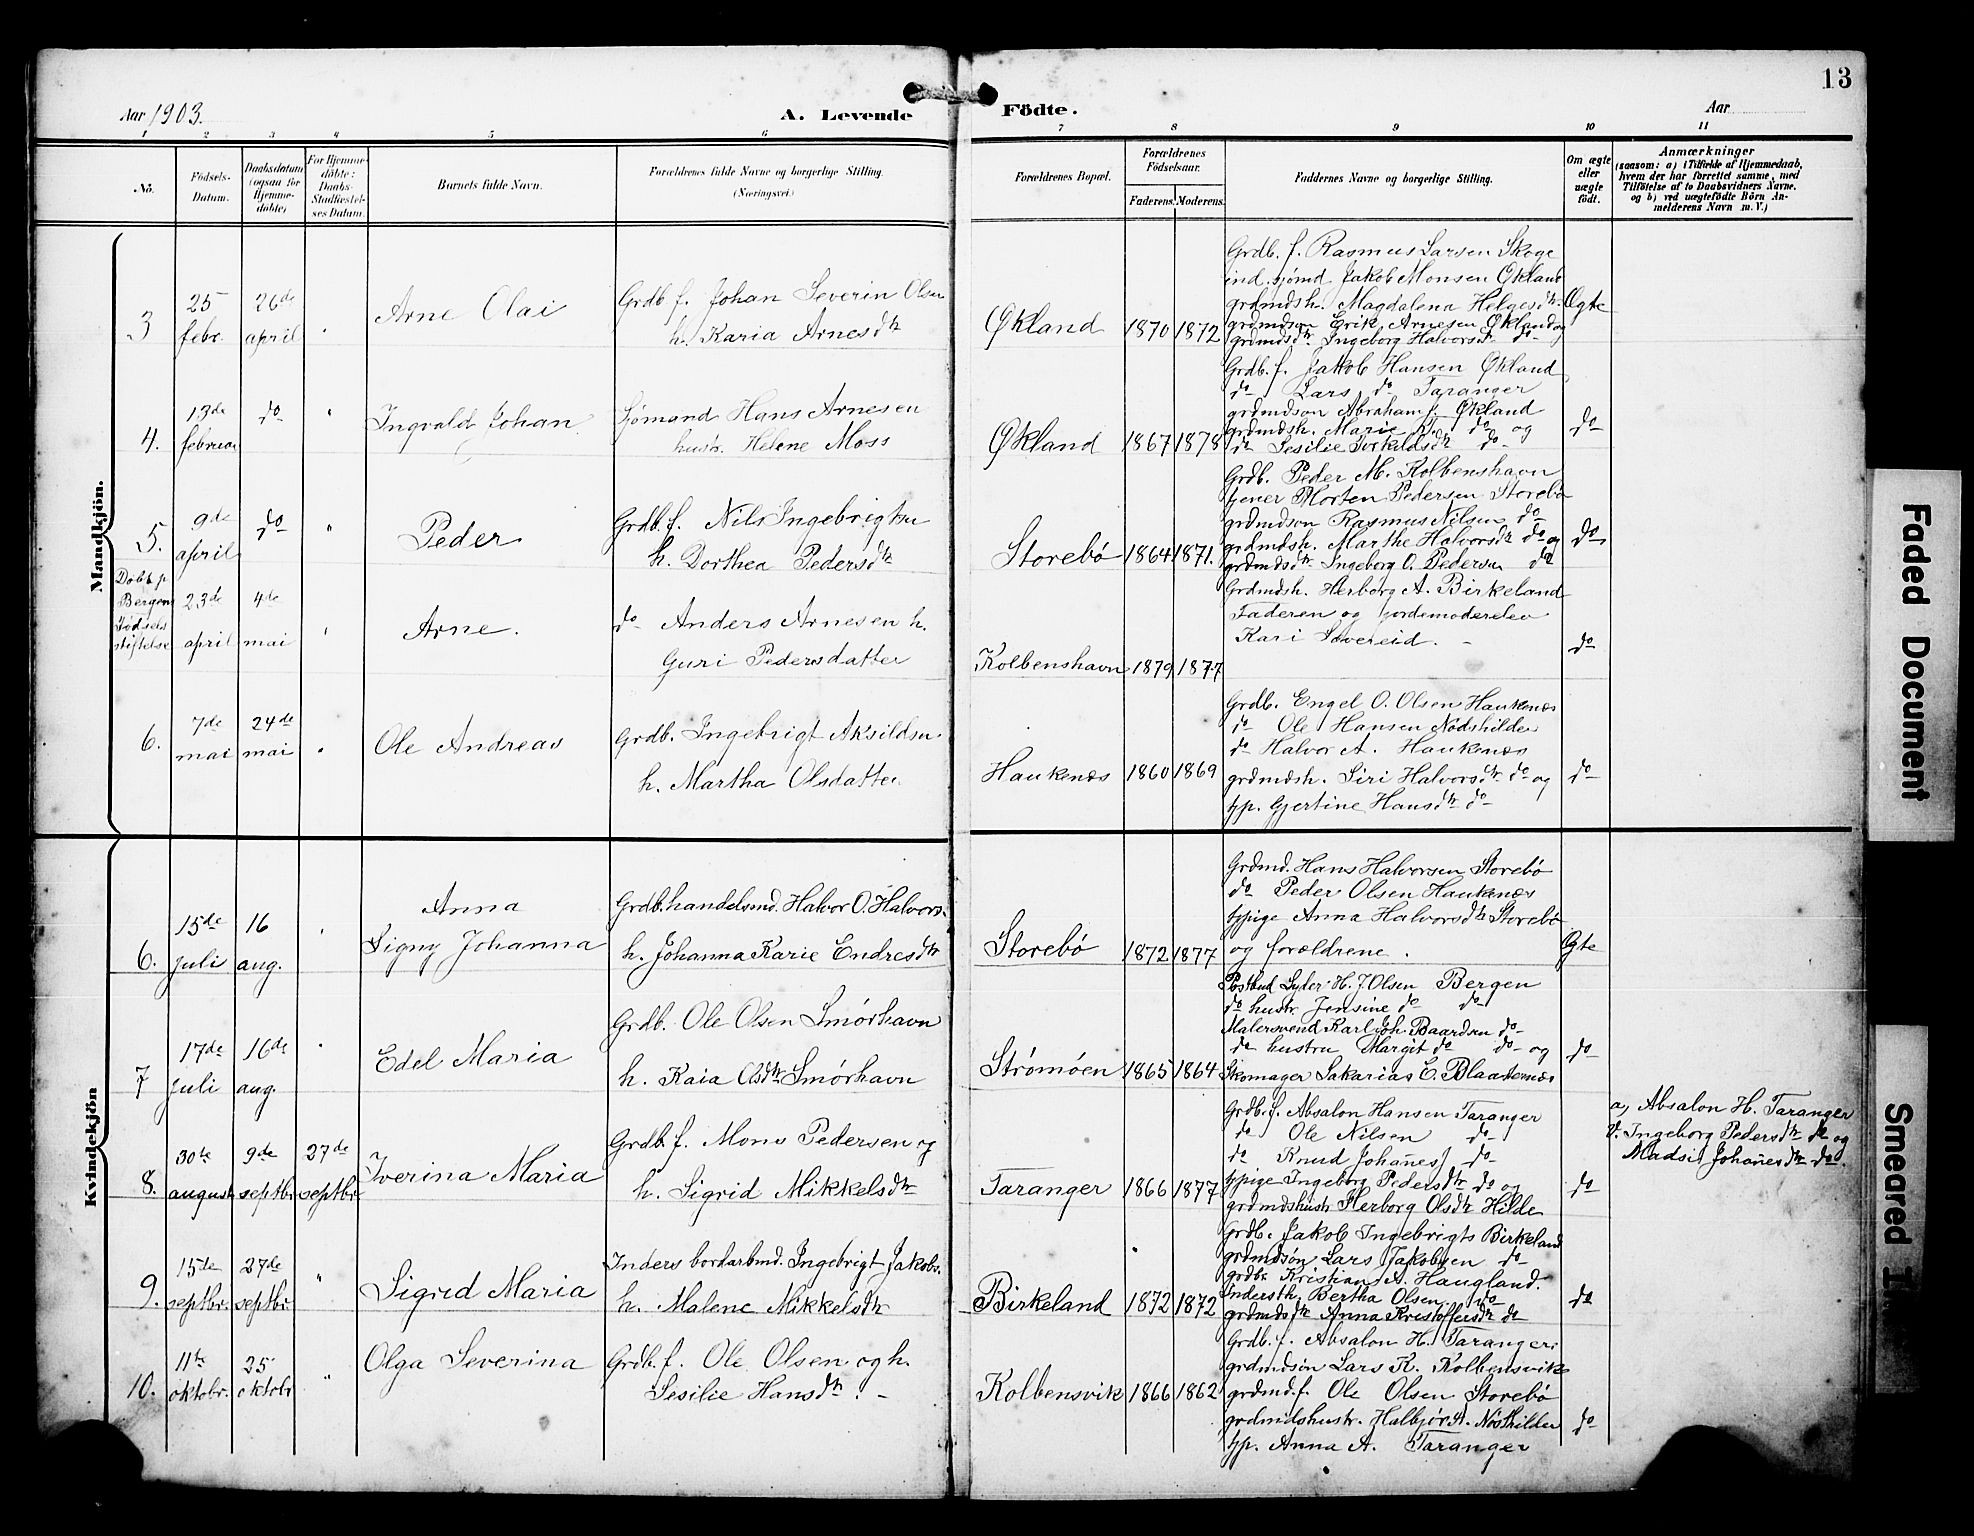 13
Aar 1903.
A. Levende Födte.
Aar
1 2 3 4 5 6 7 8 9 10 11
No.
Födsels-Datum.
Daabsdatum (ogsaa for Hjemme-döbte)
For Hjemme-döbte: Daabs-Stadfæstel-ses Datum.
Barnets fulde Navn.
Forældrenes fulde Navne og borgerlige Stilling. (Næringsvei.)
Forældrenes Bopæl.
Forældrenes Födselsaar.
Faderens. Moderens.
Faddernes Navne og borgerlige Stilling.
Om ægte eller uægte födt.
Anmærkninger
(saasom: a) i Tilfælde af Hjemmedaab,
hvem der har forrettet samme, med
Tilföielse af to Daabsvidners Navne,
og b) ved uægtefödte Börn An-
melderens Navn m. V.)
Mandkjön.
3
25 febr.
26de april
Arne Olai
Grdb. f. Johan Severin Olsen
h. Karia Arnesdtr
Økland
1870 1872
Grdb. f. Rasmus Larsen Skoge
ind. sjömd. Jakob Monsen Økland
grdmdsh. Magdalena Helgesdtr
grdmdsøn Erik Arnesen Økland og
grdmdsdtr. Ingeborg Halvorsdtr do
Ægte
4.
13de februar
do
Ingvald Johan
Sjømand Hans Arnesen
hustr. Helene Moss
Økland
1867 1878
Grdb. f. Jakob Hansen Økland
do Lars do Taranger
grdmdsøn Abraham J. Økland
grdmdsh. Marie do og
do Sesilie do
do
5.
9de april
do
Peder
Grdb. f. Nils Ingebrigtsen
h. Dorthea Pedersdtr
Storebø
1864 1871.
Grdb. Peder M. Kolbenshavn
tjener Morten Pedersen Storebø
grdmdsøn Rasmus Nilsen do
grdmdsh. Marthe Halvorsdtr do og
grdmdsdtr. Ingeborg O. Pedersen do
do
Døbt p.
Bergens
Fødsels
stiftelse
23de april
4de mai
Arne.
do Anders Arnesen h.
Guri Pedersdatter
Kolbenshavn
1879 1877
Grdmdsh. Herborg A. Birkeland
Faderen og jordemoderelev
Kari Søvereid.
do
6.
7de mai
24de mai
Ole Andreas
Grdb. Ingebrigt Aksildsen
h. Martha Olsdatter
Haukenæs
1860 1869
Grdb. Engel O. Olsen Haukenæs
do Ole Hansen Nødshilder
do Halvor A. Haukenæs
grdmdsh. Siri Halvorsdtr do og
tjp. Gjertine Hansdtr do
do
Kvindekjön
6.
15de juli
16 aug.
Anna
Signy Johanna
Grdb. handelsmd. Halvor O. Halvors.
h. Johanna Karie Endresdtr
Storebø
1872 1877
Grdmd. Hans Halvorsen Storebø
do Peder Olsen Haukenæs
tjpige Anna Halvorsdtr Storebø
og forældrene.
Ægte
7
17de juli
16de aug.
Edel Maria
Grdb. Ole Olsen Smörhavn
h. Kaia Olsdtr Smörhavn
Strømøen
1865 1864
Postbud Syder H. J. Olsen Bergen
do hustr Jensine do do
Malersvend Karl Joh. Baardsen do
do hustru Margit do do og
Skomager Sakarias E. Blaatenæs
do
8.
30te august
9de septbr
27de septbr
Iverina Maria
Grdb. f. Mons Pedersen og
h. Sigrid Mikkelsdtr
Taranger
1866 1877
Grdb. f. Absalon Hansen Taranger
do Ole Nilsen do
do Knud Johanes J. do
tjpige Ingeborg Pedersdtr do og
grdmdshustr Herborg Olsdtr Hilde
do
a, Absalon H. Taranger
V. Ingeborg Pedersdtr do og
Madsi Johanesdtr do.
9.
15de septbr.
27de septbr.
Sigrid Maria
Inders bordarbmd. Ingebrigt Jakobs.
h. Malene Mikkelsdtr
Birkeland
1872 1872
Grdb. Jakob Ingebrigts Birkeland
grdmdsøn Lars Jakobsen do
grdbr. Kristian A. Haugland.
Indersth. Bertha Olsen do
grdmdsdtr Anna Kristoffersdtr do
do
10.
11te oktobr.
25 oktobr
Olga Severina
Grdb. f. Ole Olsen og h.
Sesilie Hansdtr.
Kolbensvik
1866 1862
Grdb. f. Absalon H. Taranger
grdmdsön Lars K. Kolbensvik
grdmd. f. Ole Olsen Storebø
grdmdshustr. Halbjør A. Nösthilder
tjp. Anna A. Taranger
do
Faded Document
Smeared